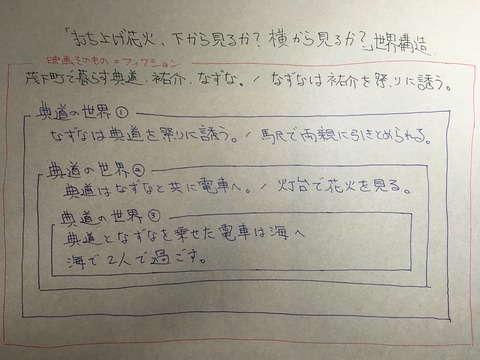 「打ち上げ花火、下から見るか?横から見るか?」世界構造
映画そのもの=フィクション
茂下町で暮らす典道、祐介、なずな。/なずなは祐介を祭りに誘う。
典道の世界①
なずなは典道を祭りに誘う。/馬尺で両親に引きとめられる。
典道の世界②
典道はなずなと共に電車へ。/灯台で花火を見る。
典道の世界③
典道となずなを乗せた電車は海へ
海で2人で過ごす。